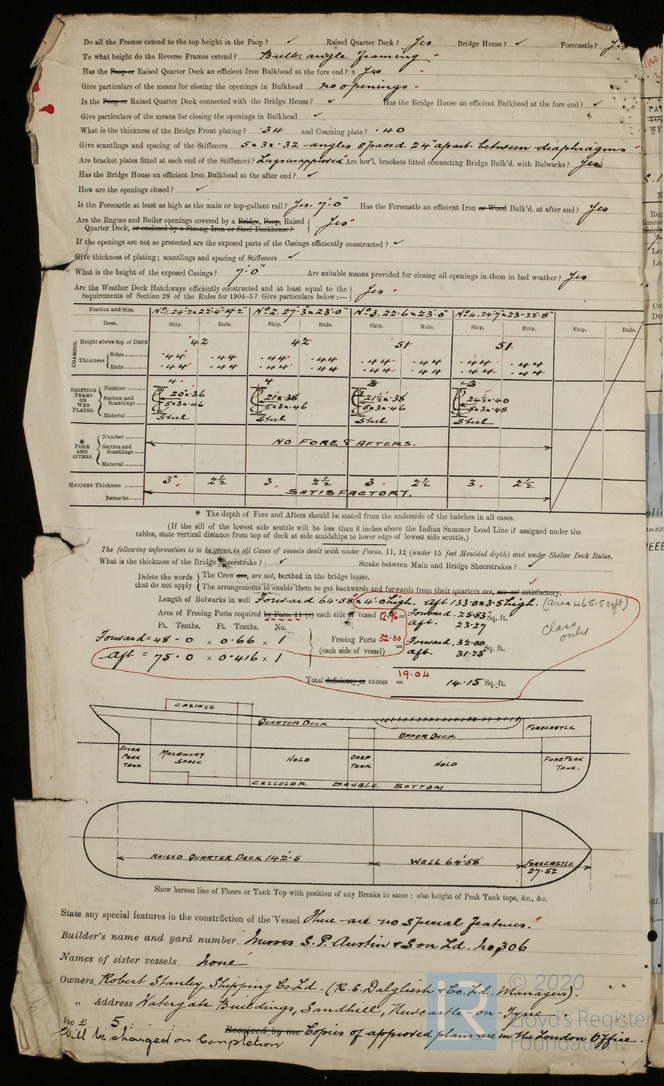 Do all the Frames extend to the top height in the Poop? ✓ Raised Quarter Deck? Yes Bridge House? ✓ Forecastle? Yes
To what height do the Reverse Frames extend? Bulb angle framing
Has the Poop or Raised Quarter Deck an efficient Iron Bulkhead at the fore end? Yes
Give particulars of the means for closing the openings in Bulkhead no openings
Is the Poop or Raised Quarter Deck connected with the Bridge House? ✓ Has the Bridge House an efficient Bulkhead at the fore end? ✓
Give particulars of the means for closing the openings in Bulkhead ✓
What is the thickness of the Bridge Front plating? .34 and Coaming plate? .40
Give scantlings and spacing of the Stiffeners 5 x 3 x .32 angles spaced 24" apart between diaphragms
Are bracket plates fitted at each end of the Stiffeners? Lugs as approved Are hor'l. brackets fitted connecting Bridge Bulk'd. with Bulwarks? Yes
Has the Bridge House an efficient Iron Bulkhead at the after end? ✓
How are the openings closed? ✓
Is the Forecastle at least as high as the main or top-gallant rail? Yes. 7'.0" Has the Forecastle an efficient Iron or Wood Bulk'd. at after end? Yes
Are the Engine and Boiler openings covered by a Bridge, Poop, Raised Quarter Deck, or enclosed by a Strong Iron or Steel Deckhouse? Yes
If the openings are not so protected are the exposed parts of the Casings efficiently constructed? ✓
Give thickness of plating; scantlings and spacing of Stiffeners ✓
What is the height of the exposed Casings? 7'.0" Are suitable means provided for closing all openings in them in bad weather? Yes
Are the Weather Deck Hatchways efficiently constructed and at least equal to the requirements of Section 28 of the Rules for 1904-5? Give particulars below:— Yes
Position and Size. No 2. 27'.3" x 23'.0" No 3. 22.6 x 23.0
Item. Ship. Rule. Ship. Rule. Ship. Rule. Ship. Rule. Ship. Rule.
COAMING. Height above top of DECK 42 42 51 51
Thickness Sides .44 .44 .44 .44 .44 .44 .44 .44
Ends .44 .44 .44 .44 .44 .44 .44 .44
SHIFTING BEAMS OR WEB PLATES. Number 4 4 3 3
Section and Scantlings 20 x .36 21½ x .38 24½ x .40
5 x 3 x .46 5 x 3 x .46 5 x 3 x .46 5 x 3 x .48
Material Steel Steel Steel Steel
* FORE AND AFTERS. Number
Section and Scantlings NO FORE & AFTERS.
Material
HATCHES Thickness 3" 2½ 3 2½ 3 2½ 3 2½
Remarks SATISFACTORY.
* The depth of Fore and Afters should be stated from the underside of the hatches in all cases.
(If the sill of the lowest side scuttle will be less than 6 inches above the Indian Summer Load Line if assigned under the
tables, state vertical distance from top of deck at side amidships to lower edge of lowest side scuttle.)
The following information is to be given in all Cases of vessels dealt with under Paras. 11, 12 (under 15 feet Moulded depth) and under Shelter Deck Rules.
What is the thickness of the Bridge Sheerstrake? ✓ Strake between Main and Bridge Sheerstrakes? ✓
Delete the words that do not apply The Crew are, are not, berthed in the bridge house.
The arrangements to enable them to get backwards and forwards from their quarters are, are not satisfactory.
Length of Bulwarks in well Forward 64.58 x 4'.0 high. Aft 133.0 x 3.5 high. (area 465.5 sqft)
Area of Freeing Ports required by Para. 11 (c) each side of vessel 12.96 = Forward. 25.83 Sq. ft.
Aft. 23.27
Class only
Ft. Tenths. Ft. Tenths. No.
Forward = 48.0 x 0.66 x 1 Freeing Ports (each side of vessel) 32.00 = Forward. 32.00 Sq. ft.
Aft = 75.0 x 0.416 x 1 Aft. 31.25
Total deficiency or excess = 19.04 14.15 Sq. ft.
CASINGS
QUARTER DECK FORECASTLE
UPPER DECK
AFTER PEAK TANK MACHINERY SPACE HOLD DEEP TANK HOLD FORE PEAK TANK.
CELLULAR DOUBLE BOTTOM
RAISED QUARTER DECK 142'.5 WELL 64'.58 FORECASTLE 27.52
Show hereon line of Floors or Tank Top with position of any Breaks in same; also height of Peak Tank tops, &c., &c.
State any special features in the construction of the Vessel There are no special features.
Builder's name and yard number Messrs S. P. Austin & Son Ld. No 306
Names of sister vessels none
Owners Robert Stanley Shipping Co. Ld. (R. S. Dalgliesh & Co. Ld. Managers).
" Address Watergate Buildings, Sandhill, Newcastle-on-Tyne
Fee £ 5 Received by me Copies of approved plans are in the London Office.
Will be charged on Completion
© 2020
Lloyd's Register
Foundation